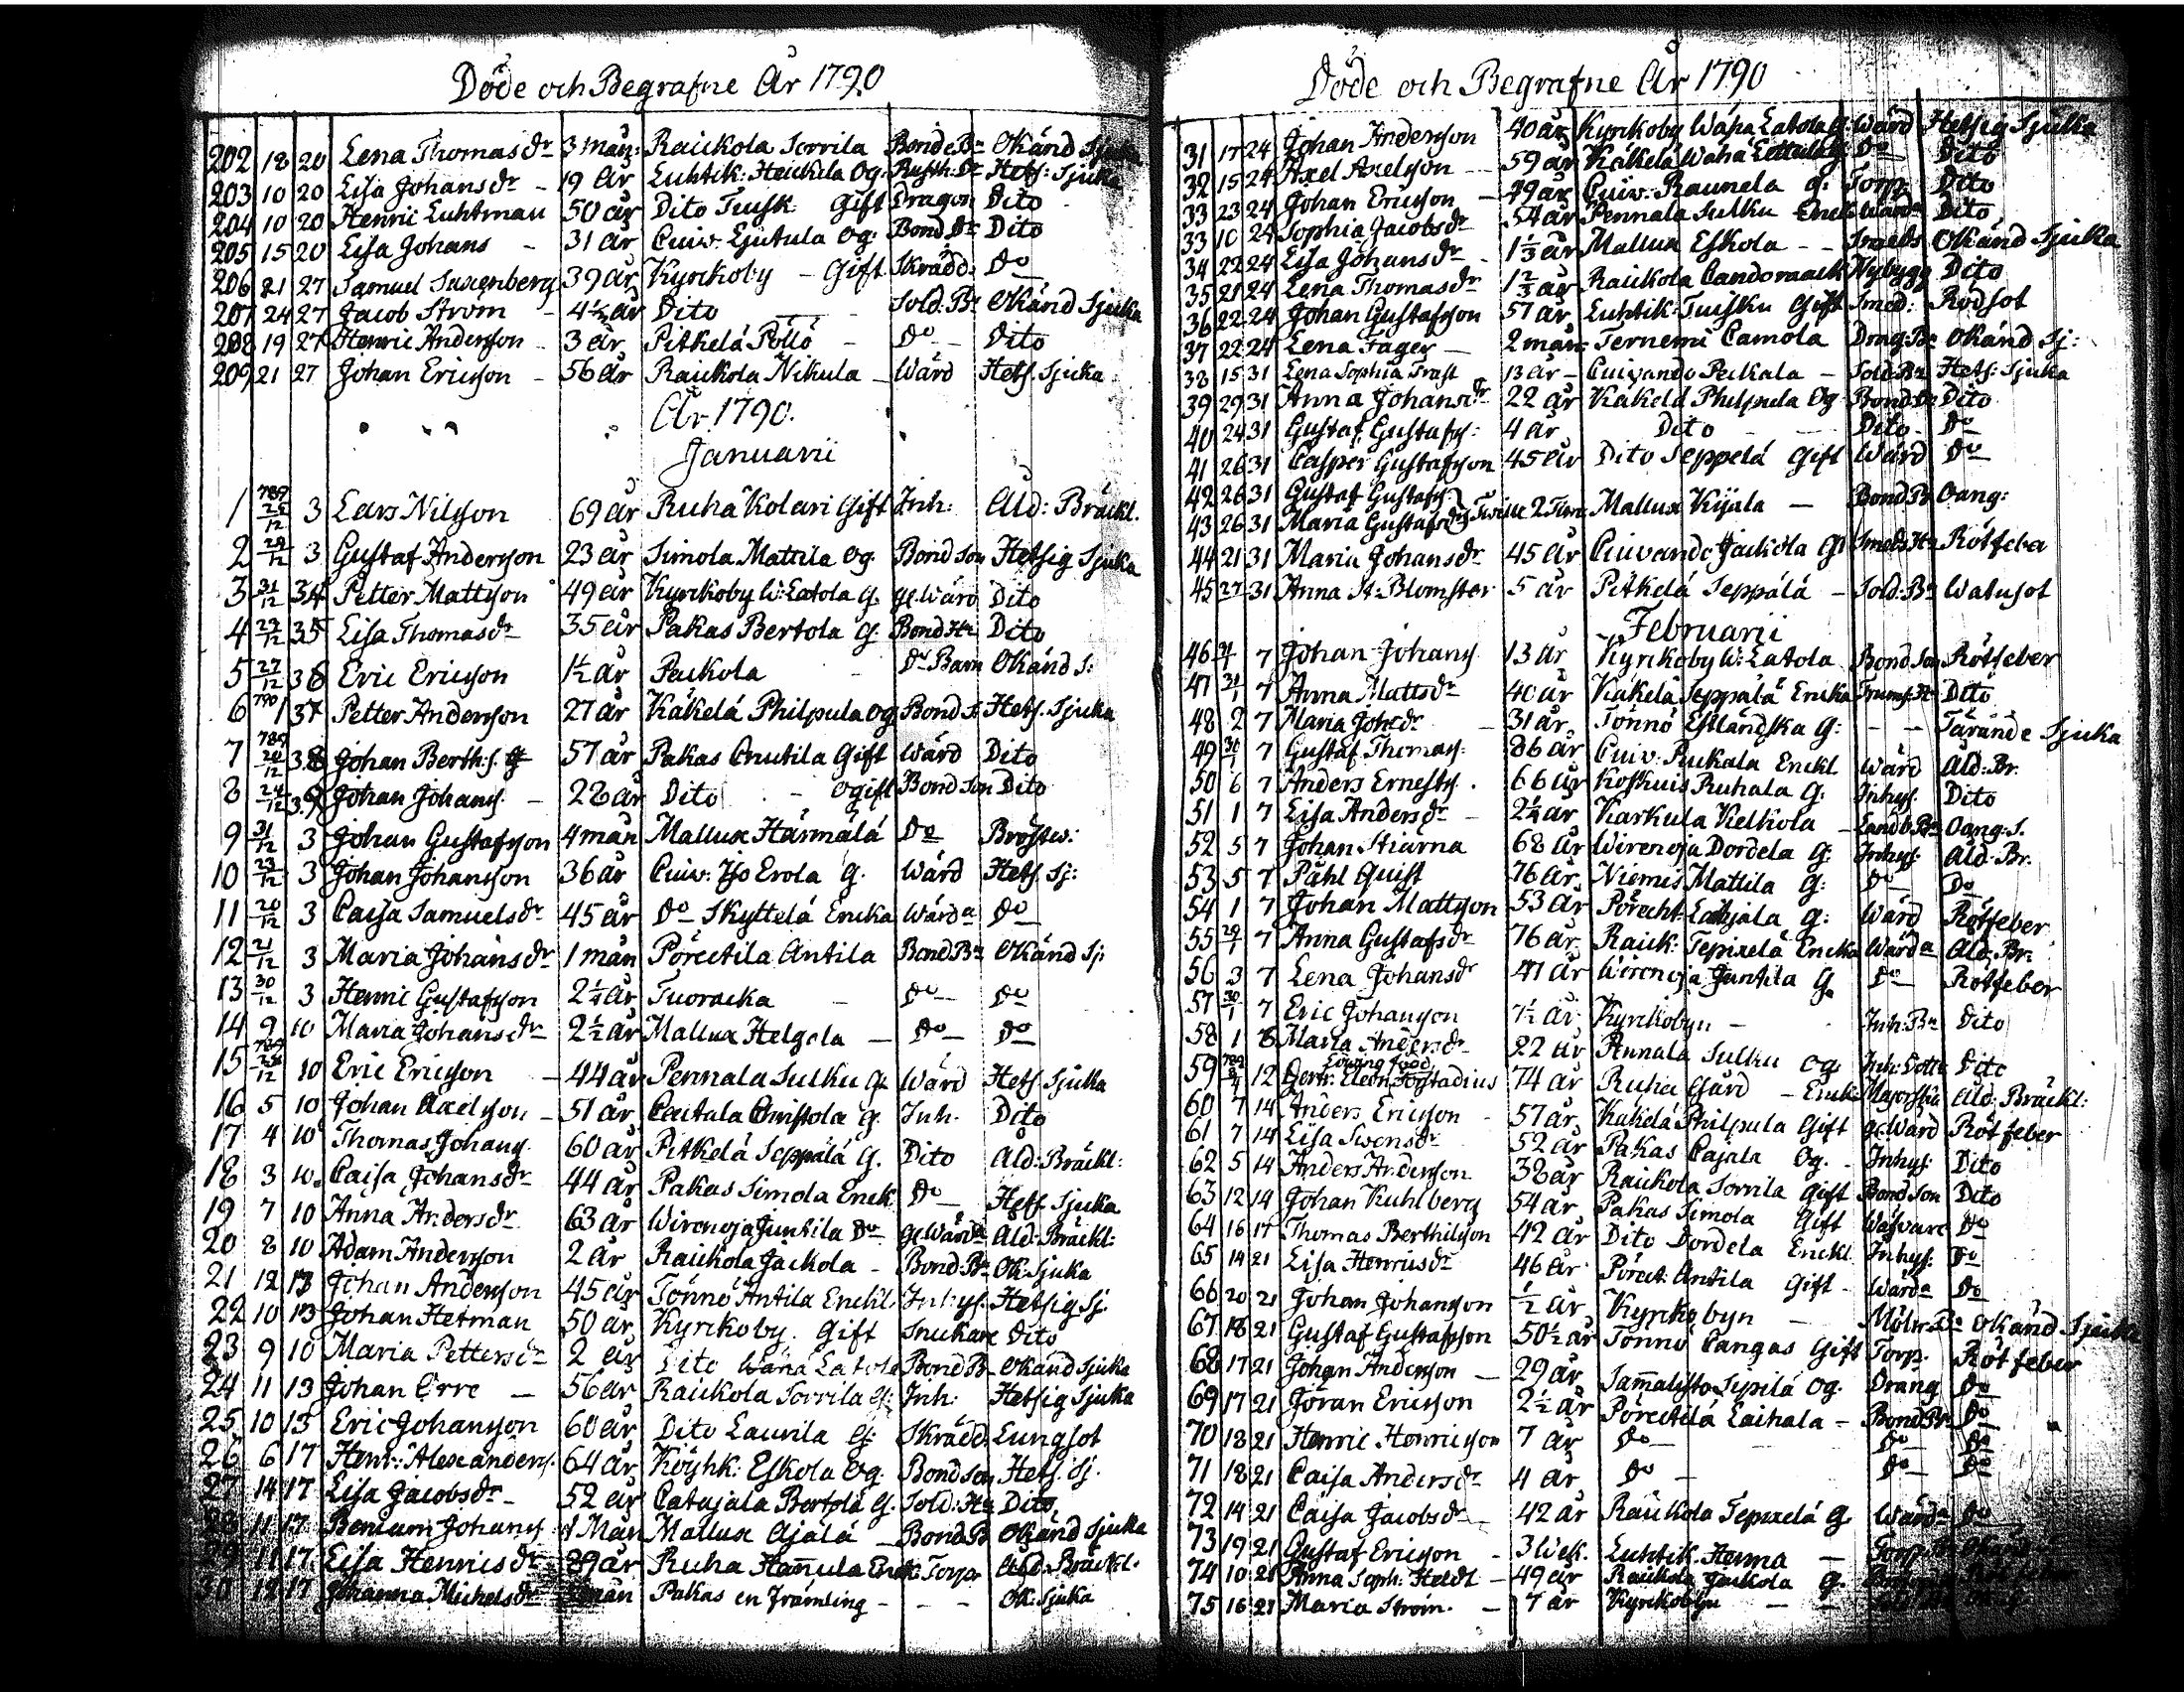 Döde och Begrafne År 1790
202 18 20 Lena Thomasdr 3 mån: Raukola Sorrila Bonde Bn Okänd Sjuka
203 10 20 Lisa Johansdr - 19 år Luhtik: Heickila Og. Rusth: Dr Hets: Sjuka
204 10 20 Henric Luhtman 50 år Dito Tuisk: Gift Dragon Dito
205 15 20 Lisa Johans - 31 år Cuiv. Ejutula Og: Bond Dr Dito
206 21 27 Samuel 39 år Kyrckoby - Gift Skrädd: Do
207 24 27 Jacob Ström - 4½ år Dito Sold: Bn Okänd Sjuka
208 19 27 Henric Andersson - 3 år Pitkelä Pöllö - Do - Dito
209 21 27 Johan Ericsson - 56 år Raukola Nikula - Wärd Hets. Sjuka
År 1790.
Januarii
1 789 28/12 3 Lars Nilsson 69 år Ruha Kolari Gift Inh: Åld: Bräckl.
2 29/12 3 Gustaf Andersson 23 år Simola Mattila Og. Bond Son Hetsig Sjuka
3 31/12 34 Petter Mattsson 49 år Kyrckoby W: Latola G. gl. Wärd Dito
4 27/12 35 Lisa Thomasdr 35 år Pakas Bertola G. Bond Hu Dito
5 27/12 36 Eric Ericsson 1½ år Peukola - Do Barn Okänd S:
6 790 1 37 Petter Andersson 27 år Käkelä Philpula Og Bond S. Hets. Sjuka
7 789 20/12 38 Johan Berth:s. 57 år Pakas Cnutila Gift Wärd Dito
8 24/12 39 Johan Johans. - 28 år Dito - Ogift Bond Son Dito
9 31/12 3 Johan Gustafsson 4 mån Mallux Härmälä Do Bröstw:
10 23/12 3 Johan Johansson 36 år Cuiv: Iso Erola G. Wärd Hets. Sj:
11 20/12 3 Caisa Samuelsdr 45 år Do Skyttelä Encka Wärda Do
12 21/12 3 Maria Johansdr 1 mån Pörcktila Antila Bond Bn Okänd Sj:
13 30/12 3 Henric Gustafsson 2¼ år Tuoracka - Do Do
14 9 10 Maria Johansdr 2½ år Mallux Helgola - Do Do
15 789 28/12 10 Eric Ericsson - 44 år Pennala Sulku G. Wärd Hets. Sjuka
16 5 10 Johan Axelsson - 51 år Cautala Christola G. Inh. Dito
17 4 10 Thomas Johans. 60 år Pitkelä Seppälä G. Dito Åld: Bräckl:
18 3 10 Caisa Johansdr 44 år Pakas Simola Enck. Do Hets Sjuka
19 7 10 Anna Andersdr 63 år Wirenoja Juntila Do gl. Wärda Åld: Bräckl:
20 8 10 Adam Andersson 2 år Raukola Jackola - Bond: Bn Ok: Sjuka
21 12 13 Johan Andersson 45 år Tönnö Antila Enckl. Inhys. Hetsig Sj.
22 10 13 Johan Hetman 50 år Kyrckoby. Gift Snickare Dito
23 9 10 Maria Pettersdr 2 år Dito Wähä Latola Bond B. Okänd Sjuka
24 11 13 Johan Orre - 56 år Raukola Sorrila G: Inh: Hetsig Sjuka
25 10 13 Eric Johansson 60 år Dito Laurila G: Skrädd. Lungsot
26 6 17 Henr: Alexanders. 64 år Köyhk: Eskola Og. Bond Son Hets. Sj.
27 14 17 Lisa Jacobsdr - 52 år Catajala Bertola G. Sold: Hu Dito
28 11 17 Beniam Johans Mån Mallux Ajälä - Bond B Okänd Sjuka
29 11 17 Lisa Henricsdr 89 år Ruha Hannula Enck: Torp Åld: Bräckl.
30 12 17 Johanna Michelsdr mån Pakas en främling - - - Ok: Sjuka
Döde och Begrafne År 1790
31 17 24 Johan Andersson 40 år Kyrkoby Wäha Latola G. Wärd Hetsig Sjuka
32 15 24 Axel Axelsson - 59 år Käkelä Wähä G Do Dito
33 23 24 Johan Ericsson - 49 år Cuiv: Raunela G: Torp. Dito
33 10 24 Sophia Jacobsdr 54 år Pennala Sulku Enck Wärda Dito
34 22 24 Lisa Johansdr - 1⅔ år Mallux Eskola - - Okänd Sjuka
35 21 24 Lena Thomasdr 1½ år Raukola Nybygg Dito
36 22 24 Johan Gustafsson 57 år Luhtik: Tuisku Gift Smed: Rödsot
37 22 24 Lena Fager - 2 mån: Ternemi Camola Drag: Bn Okänd Sj:
38 15 31 Lena Sophia Trast 13 år - Cuivando Peckala - Sold: Bn Hets: Sjuka
39 29 31 Anna Johansdr 22 år Käkelä Philpula Og Bond Dr Dito
40 24 31 Gustaf Gustafs: 4 år Dito Dito Do
41 26 31 Casper Gustafsson 45 år Dito Seppelä Gift Wärd Do
42 26 31 Gustaf Gustafs.
43 26 31 Maria Gustafsdr 2 Mallux Kijala - Bond Bn Oang:
44 21 31 Maria Johansdr 45 år Cuivando Jackola G Smeds Hu Rötfeber
45 27 31 Anna St: Blomster 5 år Pitkelä Seppälä - Sold: Bn Watusot
Februarii
46 31/1 7 Johan Johans 13 år Kyrckoby W: Latola Bond Son Rötfeber
47 31/1 7 Anna Mattsdr 40 år Käkelä Seppälä Encka Trump: H Dito
48 2 7 Maria Johsdr - 31 år Tönnö Estländska G: - - Tärände Sjuka
49 30/1 7 Gustaf Thomas: 86 år Cuiv. Puckala Enckl Wärd Åld: Br.
50 6 7 Anders Ernests. 66 år Koskuis Ruhala G: Inhys. Dito
51 1 7 Lisa Andersdr - 2¼ år Karkula Kelkola - Landb. Bn Oang: S.
52 5 7 Johan Stiärna 68 år Wirenoja Dordela G: Inhys: Åld: Br.
53 5 7 Påhl Quist 76 år Niemis Mattila G: Do Do
54 1 7 Johan Mattsson 53 år Pörcckt: Laihjala G: Wärd Rötfeber
55 29/1 7 Anna Gustafsdr 76 år Rauck: Tepixelä Encka Wärda Åld: Br:
56 3 7 Lena Johansdr 41 år Wirenoja Juntila G. Do Rötfeber
57 30/1 7 Eric Johansson 7½ år Kyrckobyn - Inh: Bn Dito
58 1 8 Maria Andersdr 22 år Pennala Sulku Og Inh: Dotter Dito
59 789 12 Gertr: Eleon: 74 år Ruha Gård - Enck: Majorska Åld: Bräckl:
60 7 14 Anders Ericsson - 57 år Käkelä Philpula Gift gl. Wärd Rötfeber
61 7 14 Lisa Svensdr 52 år Pakas Cajala Og. Inhys: Dito
62 5 14 Anders Andersson 38 år Raukola Sorrila Gift Bond Son Dito
63 12 14 Johan Kuhlberg 54 år Pakas Simola Gift Wäfvare Do
64 16 17 Thomas Berthilsson 42 år Dito Dordela Enckl Inhys: Do
65 14 21 Lisa Henricsdr 46 år Pörckt: Antila Gift - Wärda Do
66 20 21 Johan Johansson ½ år Kyrckobyn - Möln. Bn Okänd Sjuka
67 18 21 Gustaf Gustafsson 50½ år Tönnö Cangas Gift Torp: Rötfeber
68 17 21 Johan Andersson - 29 år Samalisto Sepilä Og. Dräng Do
69 17 21 Jöran Ericsson 2½ år Pörcktilä Laihala - Bond Bn Do
70 18 21 Henric Henricsson 7 år Do Do Do
71 18 21 Caisa Andersdr 4 år Do - Do Do
72 14 21 Caisa Jacobsdr - 42 år Raukola Tepixelä G. Wärda Do
73 19 21 Gustaf Ericsson - 3 Wek. Luhtik. Herma -
74 10 21 Anna Soph: Heldt - 49 år Raukola Jackola G.
75 16 21 Maria Ström. - 7 år Kyrckobyn - -